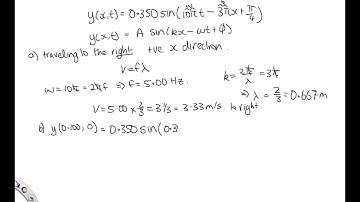 y(x,t) = 0.350 sin(10πt - 3πx + π/4)
y(x,t) = A sin(kx - wt + φ)
a) traveling to the right +ve x direction.
v = fλ
w = 10π = 2πf ⇒ f = 5.00 Hz.
k = 2π/λ = 3π
⇒ λ = 2/3 = 0.667m
V = 5.00 × 2/3 = 3 1/3 = 3.33 m/s. to right.
b) y(0.100, 0) = 0.350 sin(0.3